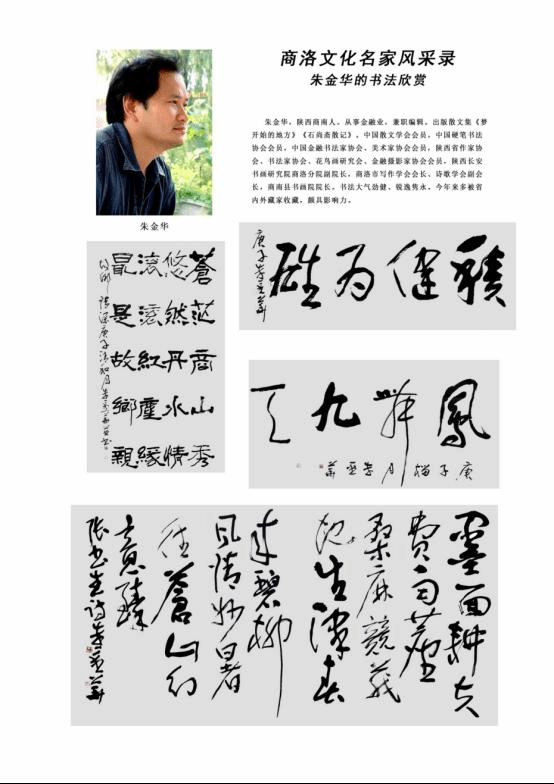 商洛文化名家风采录
朱金华的书法欣赏
朱金华，陕西商南人。从事金融业，兼职编辑。出版散文集《梦
开始的地方》《石尚斋散记》，中国散文学会会员，中国硬笔书法
协会会员，中国金融书法家协会、美术家协会会员，陕西省作家协
会、书法家协会、花鸟画研究会、金融摄影家协会会员，陕西长安
书画研究院商洛分院副院长，商洛市写作学会会长、诗歌学会副会
长，商南县书画院院长。书法大气劲健、锐逸隽永，今年来多被省
内外藏家收藏，颇具影响力。
朱金华
積健为雄
庚子 朱金華
蒼茫商山秀
悠然丹水情
滚滚紅塵緣
最是故鄉親
鳳舞九天
庚子 月 朱金華
墨面耕
桑麻競
生津春
来碧柳
風情妙
往蒼山幻
意臻
张 生诗 朱金華